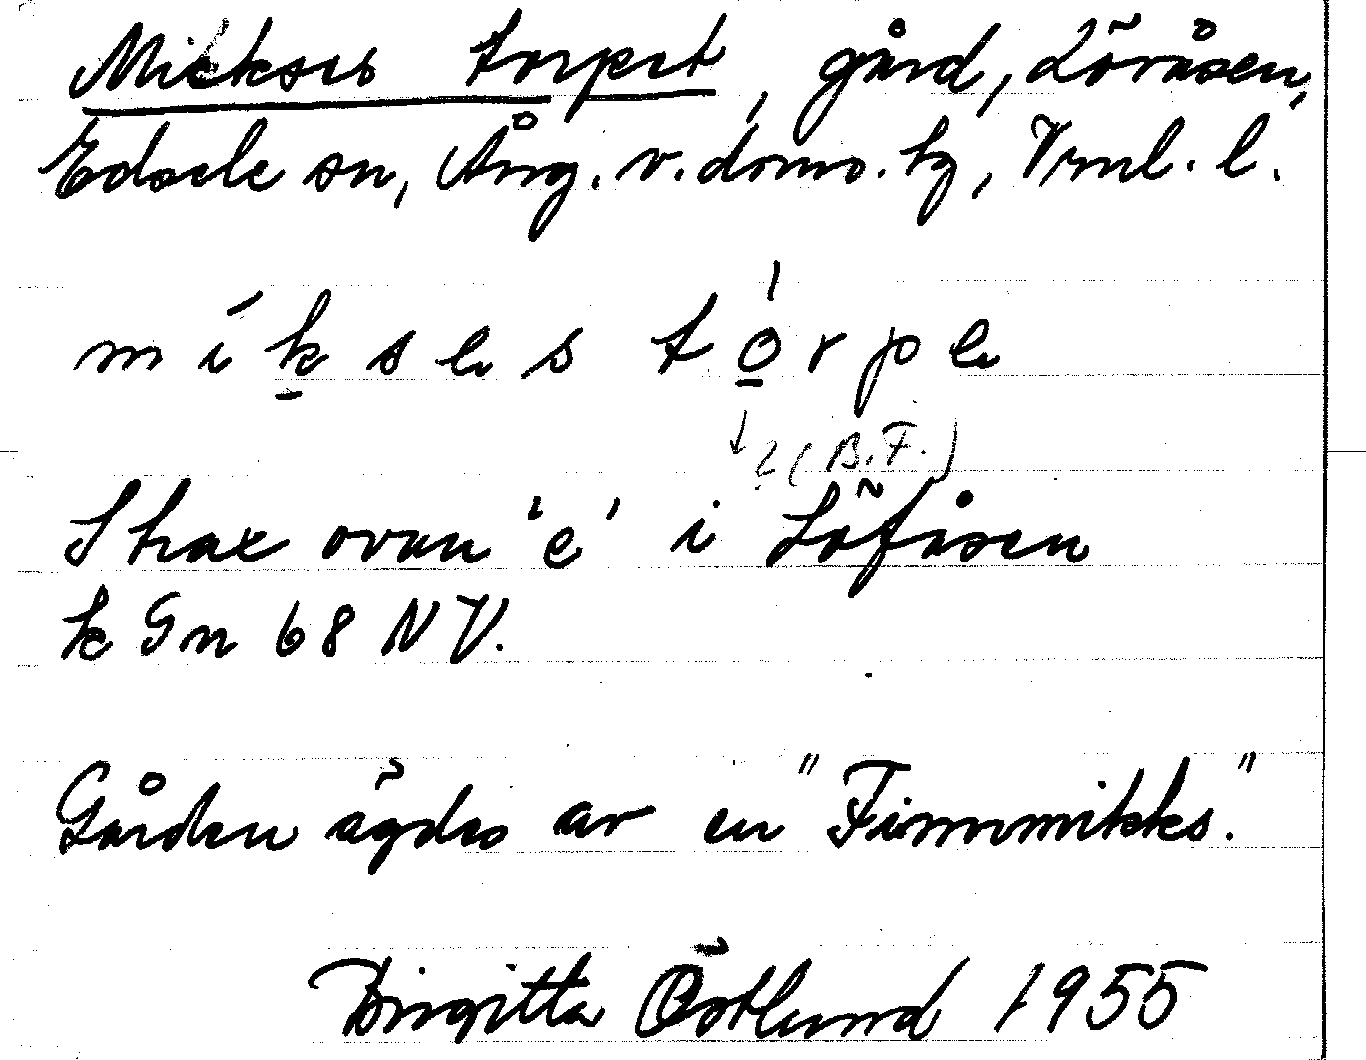 Mickses torpet, gård, Lövåsen,
Edsele sn, Ång. v. doms. tg, Vrnl. l.
m i k s e s t o r p e
? (B.F.)
Strax ovan 'e' i Löfåsen
k Gn 68 NV.
Gården ägdes av en "Finnmikks."
Birgitta Östlund 1955